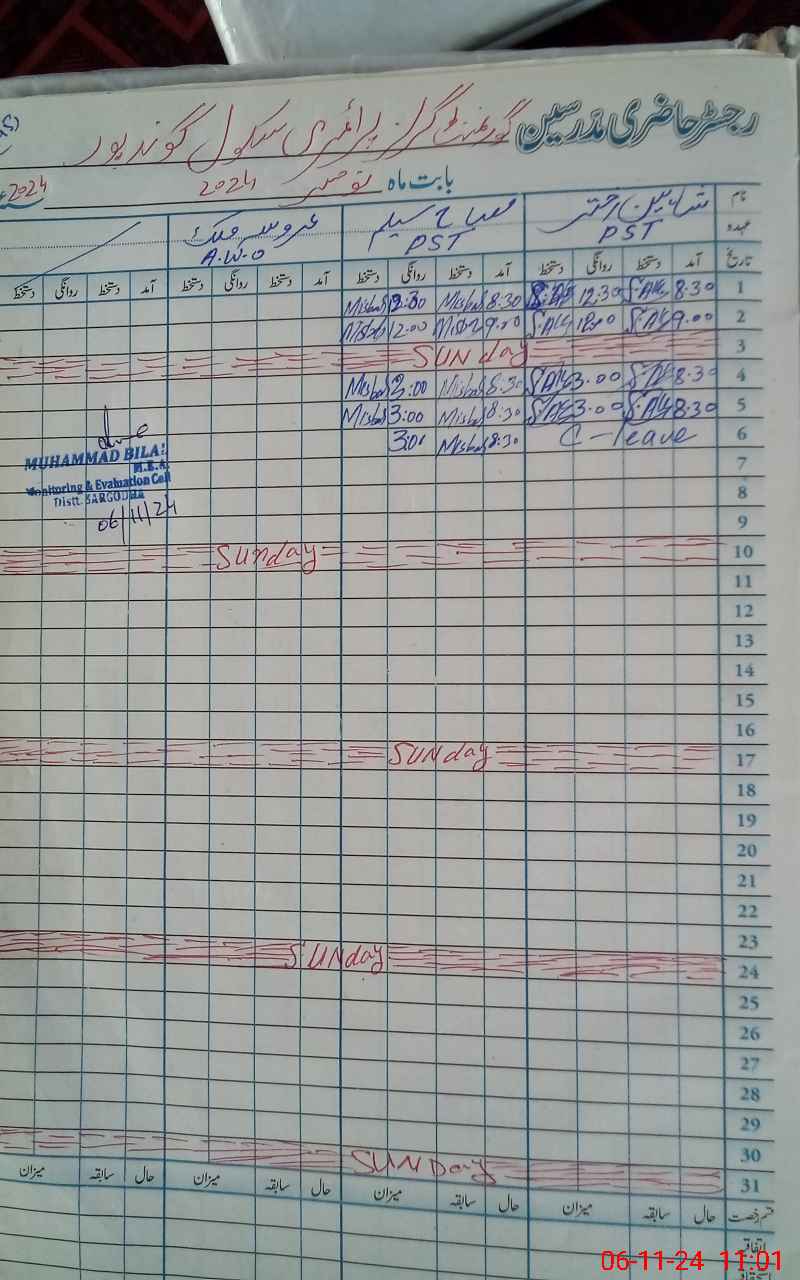 رجسٹر حاضری مدرسین گورنمنٹ گرلز پرائمری سکول گوندپور
بابت ماہ نومبر 2024 2024
نام شاہین اختر مصباح سلیم عروسہ ملک
عہدہ PST PST A.W.O
تاریخ آمد دستخط روانگی دستخط آمد دستخط روانگی دستخط آمد دستخط روانگی دستخط آمد دستخط روانگی دستخط
1 8:30 S.Akh 12:30 8:30 Misbah 12:30 Misbah
2 9:00 S.Akh 12:00 S.Akh 9:00 Misbah 12:00 Misbah
3 SUNday
4 8:30 S.Akh 3:00 S.Akh 8:30 Misbah 3:00 Misbah
5 8:30 S.Akh 3:00 S.Akh 8:30 Misbah 3:00 Misbah
6 C-leave 8:30 Misbah 3:00
MUHAMMAD BILAL
M.E.A.
Monitoring & Evaluation Cell
Distt. SARGODHA
06/11/24
7
8
9
10 Sunday
11
12
13
14
15
16
17 SUNday
18
19
20
21
22
23
24 SUNday
25
26
27
28
29
30
31 SUNDay
قسم رخصت حال سابقہ میزان حال سابقہ میزان حال سابقہ میزان حال سابقہ میزان
اتفاقیہ
06-11-24 11:01